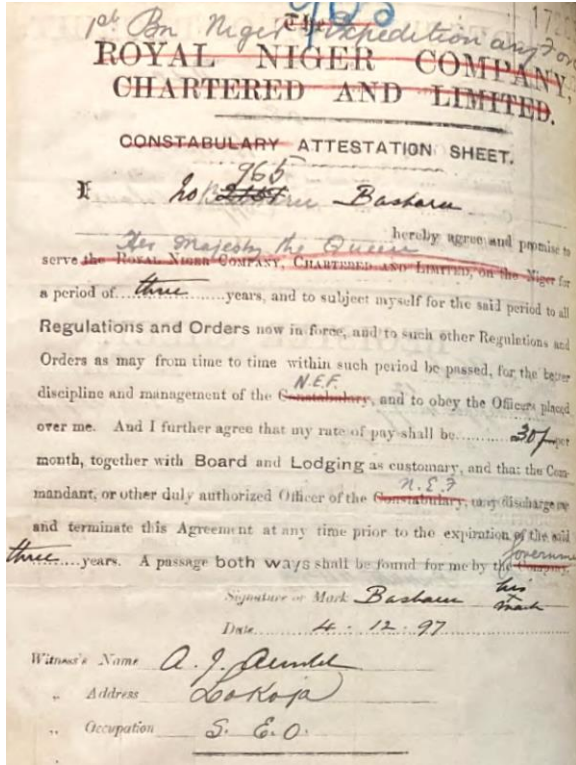 1st Bn Niger Expeditionary For
The
ROYAL NIGER COMPANY,
CHARTERED AND LIMITED.
CONSTABULARY ATTESTATION SHEET.
965
I No Basharu
hereby agree and promise to
Her Majesty the Queen
serve the ROYAL NIGER COMPANY, CHARTERED AND LIMITED, on the Niger for
a period of three years, and to subject myself for the said period to all
Regulations and Orders now in force, and to such other Regulations and
Orders as may from time to time within such period be passed, for the better
N.E.F.
discipline and management of the Constabulary, and to obey the Officers placed
over me. And I further agree that my rate of pay shall be 30/ per
month, together with Board and Lodging as customary, and that the Com-
N.E.F
mandant, or other duly authorized Officer of the Constabulary, may discharge me
and terminate this Agreement at any time prior to the expiration of the said
Governme
three years. A passage both ways shall be found for me by the Company.
Signature or Mark Basharu his x mark
Date 4.12.97
Witness's Name A. J.
„ Address Lokoja
„ Occupation S. E. O.